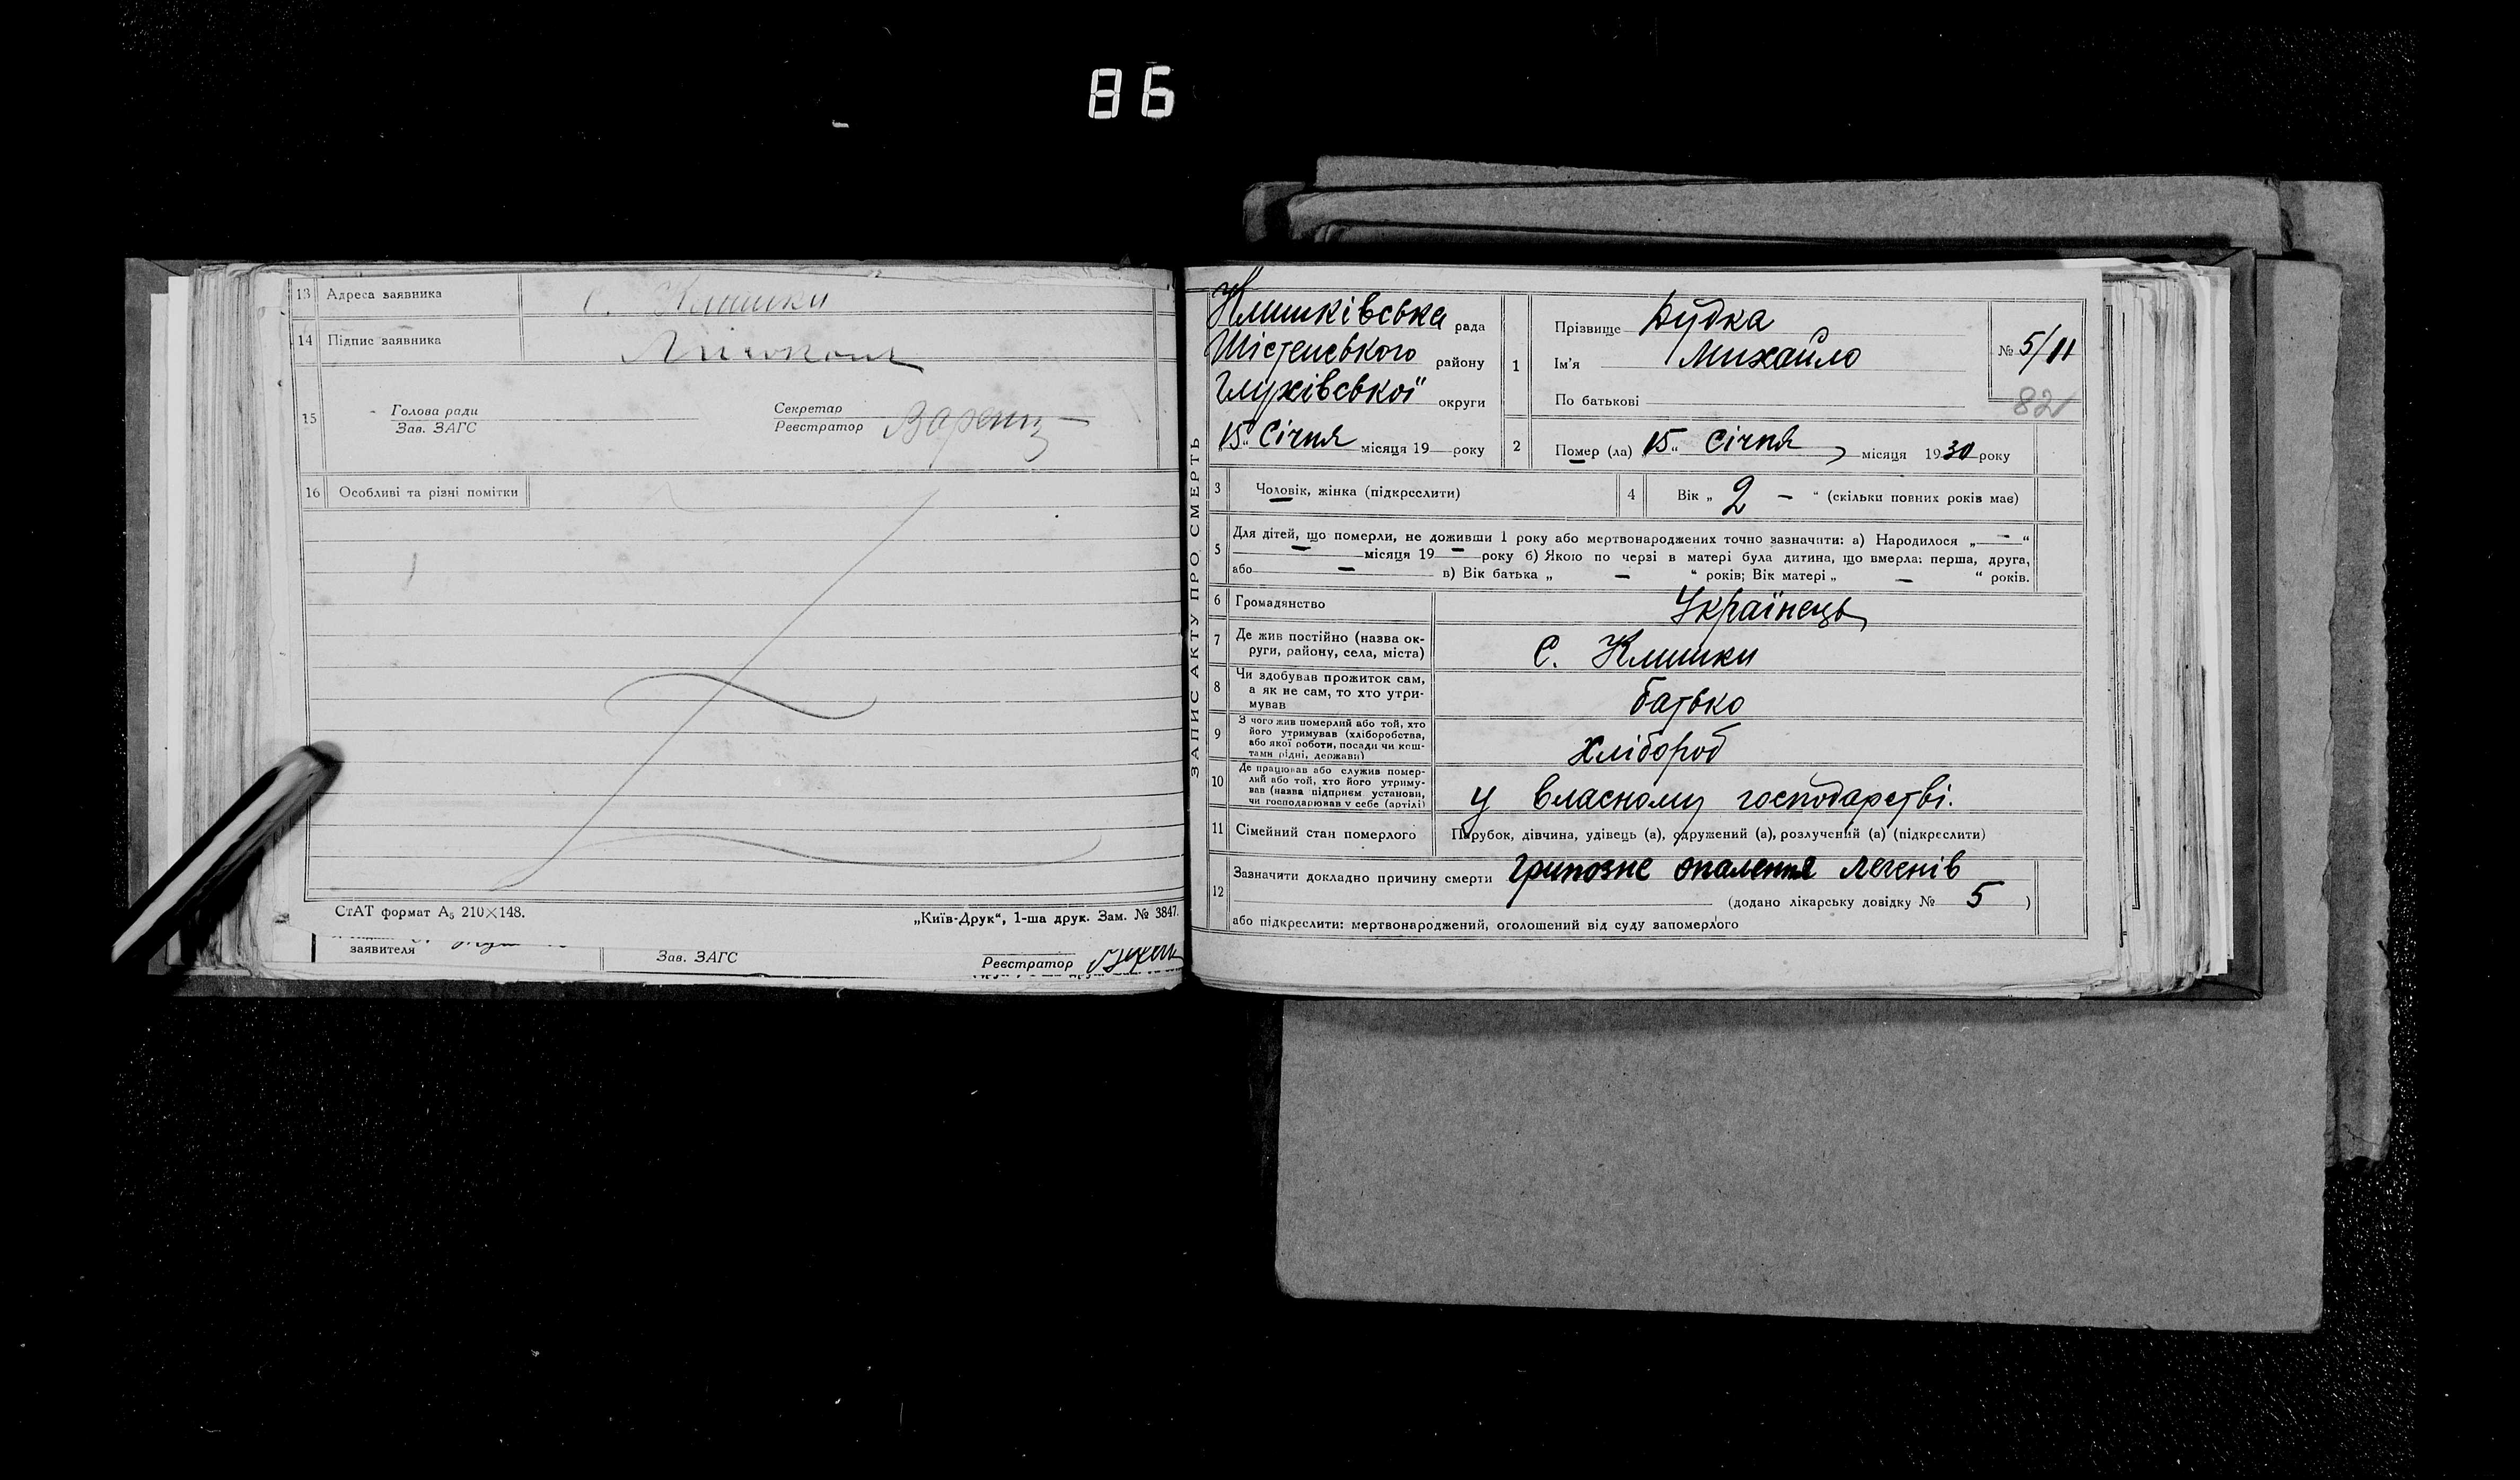 86
13 Адреса заявника с. Клишки
14 Підпис заявника
15 Голова ради
Зав. ЗАГС
Секретар
Реєстратор
16 Особливі та різні помітки
СтАТ формат А₅ 210×148.
„Київ-Друк“, 1-ша друк. Зам. № 3847.
заявителя
Зав. ЗАГС
Реєстратор
ЗАПИС АКТУ ПРО СМЕРТЬ
Клишківська рада
Шістенського району
Глухівської округи
„15“ Січня місяця 19 — року
1 Прізвище Дудка
Ім'я Михайло
По батькові
№ 5/11
82
2 Помер (ла) „15“ Січня місяця 1930 року
3 Чоловік, жінка (підкреслити)
4 Вік „ 2 — “ (скільки повних років має)
5 Для дітей, що померли, не доживши 1 року або мертвонароджених точно зазначити: а) Народилося „ — “
— місяця 19 — року б) Якою по черзі в матері була дитина, що вмерла: перша, друга,
або — в) Вік батька „ — “ років; Вік матері „ — “ років.
6 Громадянство Українець
7 Де жив постійно (назва ок-
руги, району, села, міста) С. Клишки
8 Чи здобував прожиток сам,
а як не сам, то хто утри-
мував батько
9 З чого жив померлий або той, хто
його утримував (хліборобства,
або якої роботи, посади чи кош-
тами рідні, держави) хлібороб
10 Де працював або служив помер-
лий або той, хто його утриму-
вав (назва підприєм установи,
чи господарював у себе (артілі) у власному господарстві.
11 Сімейний стан померлого Парубок, дівчина, удівець (а), одружений (а), розлучений (а) (підкреслити)
12 Зазначити докладно причину смерти грипозне опалення легенів
(додано лікарську довідку № 5 )
або підкреслити: мертвонароджений, оголошений від суду запомерлого